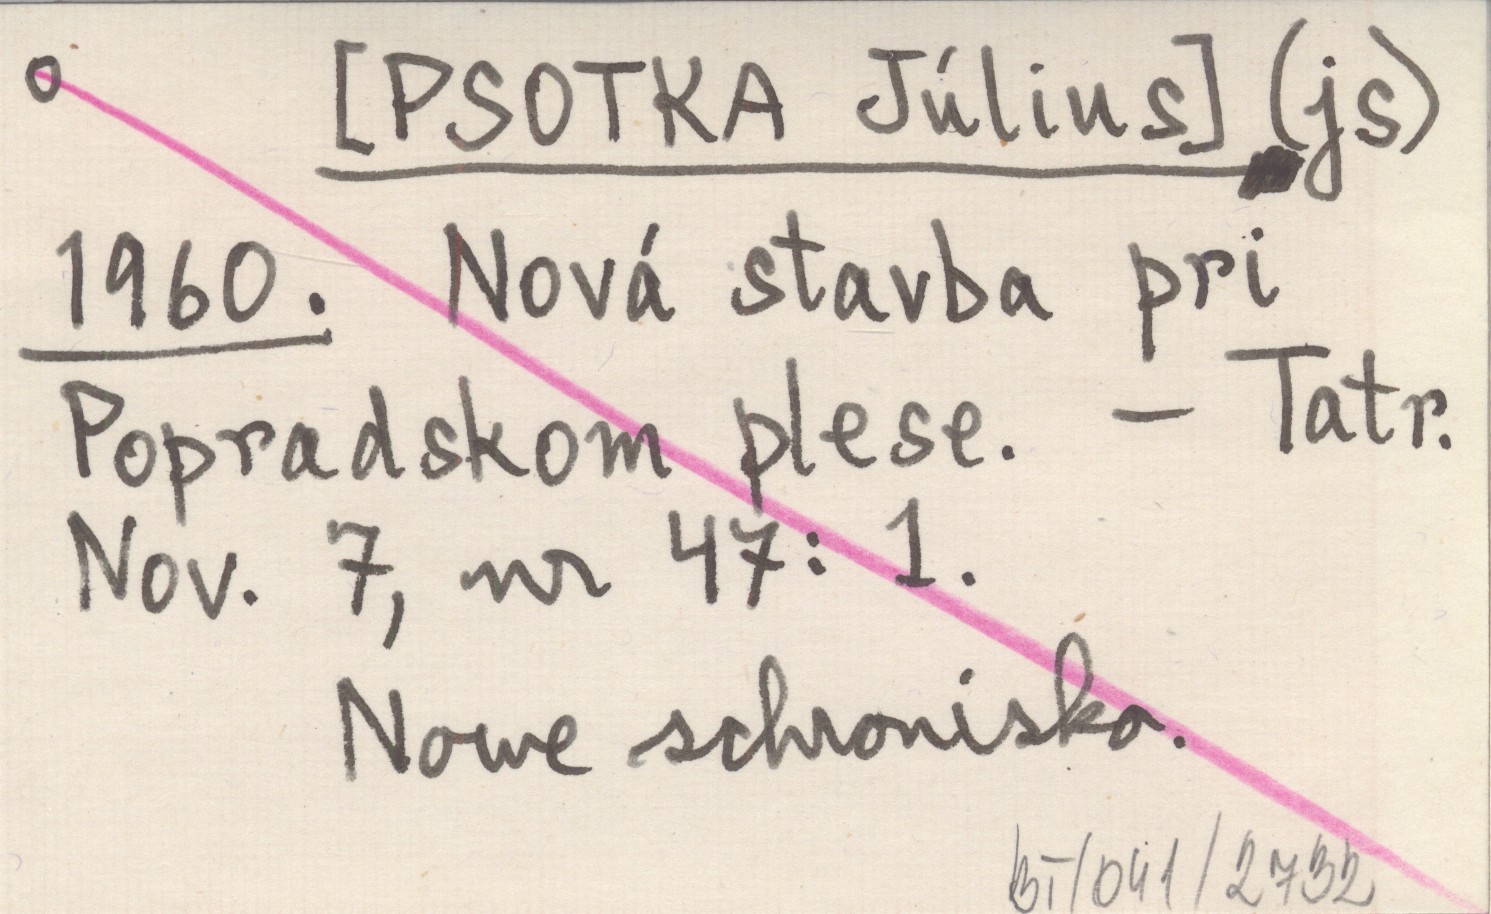 [PSOTKA Július] (js)
1960. Nová stavba pri
Popradskom plese. – Tatr.
Nov. 7, nr 47: 1.
Nowe schronisko.
BT/041/2732